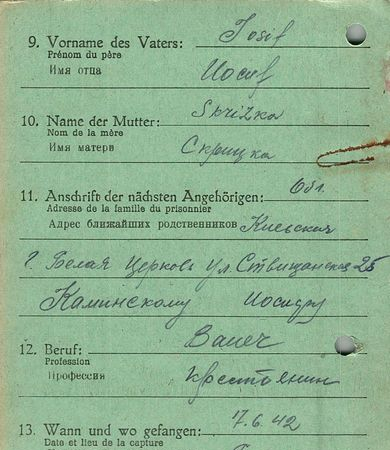 9. Vorname des Vaters: Iosif
Prénom du père
Имя отца Иосиф
10. Name der Mutter: Skrizka
Nom de la mère
Имя матери Скрицка
11. Anschrift der nächsten Angehörigen: Обл.
Adresse de la famille du prisonnier
Адрес ближайших родственников Киевская
г. Белая Церковь ул. 25
Каминскому
12. Beruf: Bauer
Profession
Профессия крестьянин
13. Wann und wo gefangen: 7.6.42
Date et lieu de la capture